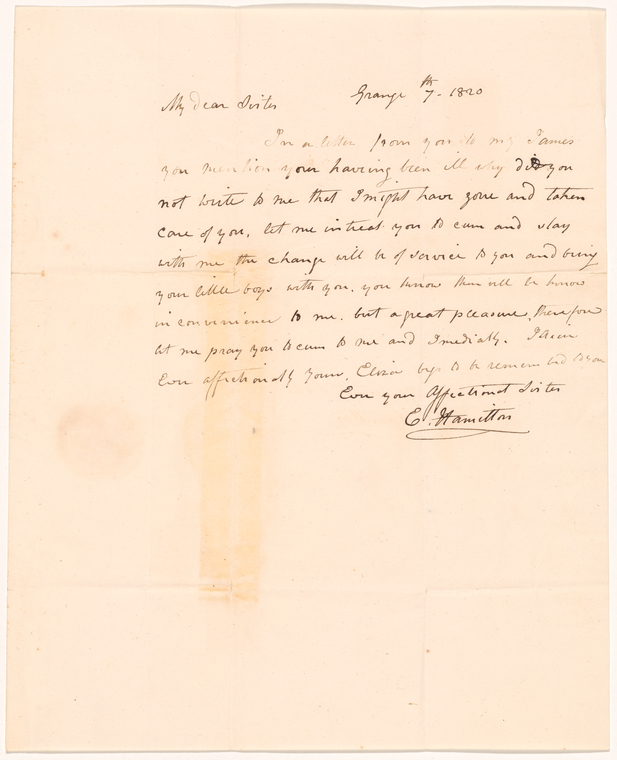 Grange 7th - 1820
My dear Sister
In a letter from you to my James
you mention your having been ill why did you
not write to me that I might have gone and taken
care of you, let me intreat you to cum and stay
with me the change will be of service to you and bring
your little boys with you, you know ther will be
inconvenience to me. but a great pleasure, therefore
let me pray you to cum to me and Imediatly.
Ever affectionatly yours, Eliza begs to be remembed to you
Ever your Affectionat Sister
E. Hamilton